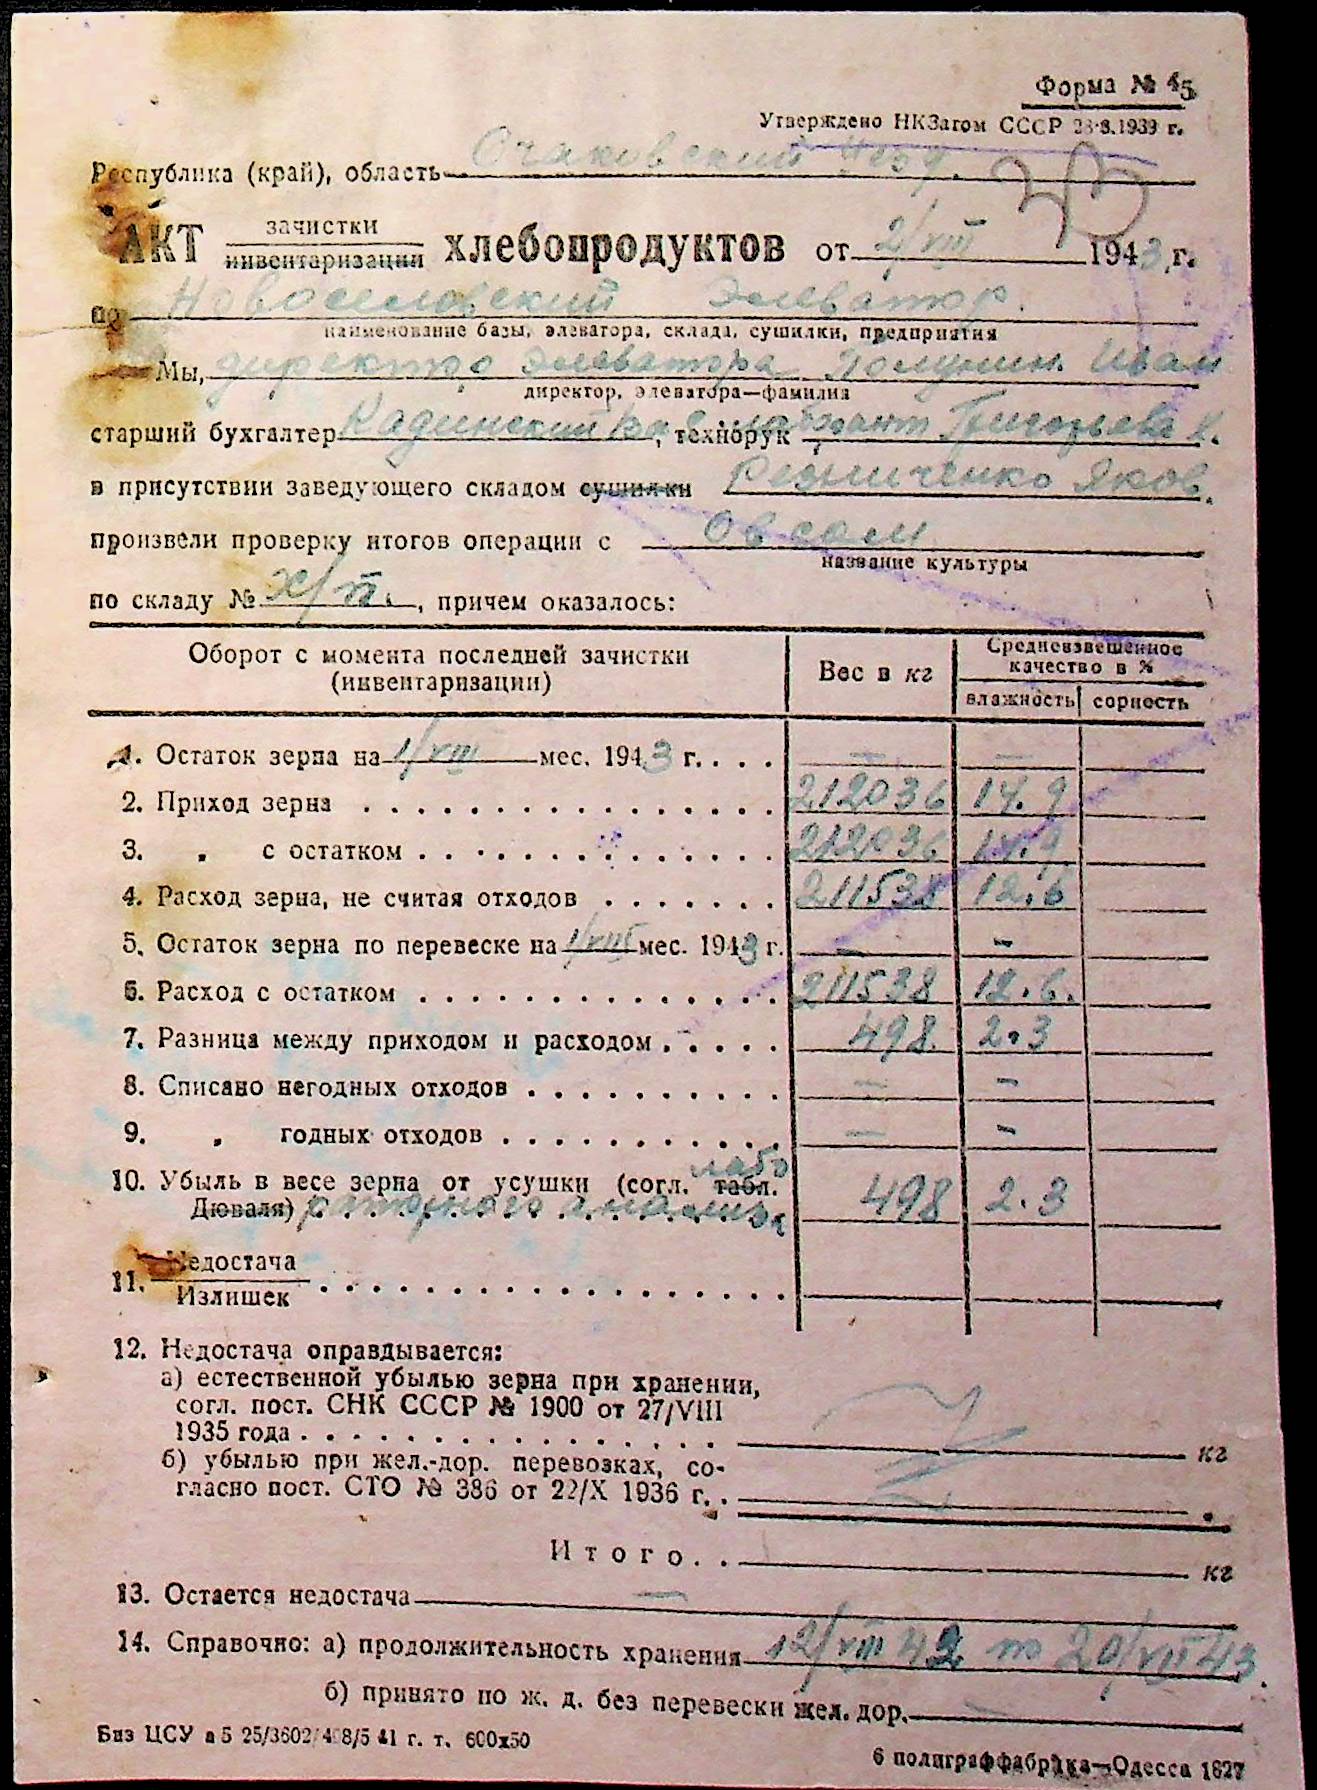 Форма № 45
Утверждено НКЗагом СССР 28·8.1939 г.
Республика (край), область Очаковский уезд.
АКТ зачистки инвентаризации хлебопродуктов от 2/VIII 1943 г.
по Новоселовский Элеватор.
наименование базы, элеватора, склада, сушилки, предприятия
Мы, директор элеватора Полунин Иван
директор, элеватора—фамилия
старший бухгалтер Кадинский, технорук лаборант Григорьева К.
в присутствии заведующего складом сушилки Резниченко Яков.
произвели проверку итогов операции с Овсом
название культуры
по складу № х/п., причем оказалось:
Оборот с момента последней зачистки (инвентаризации)
Вес в кг
Средневзвешенное качество в %
влажность сорность
1. Остаток зерна на 1/VIII мес. 1943 г. — —
2. Приход зерна 212036 14.9
3. „ с остатком 212036 14.9
4. Расход зерна, не считая отходов 211538 12.6
5. Остаток зерна по перевеске на 1/VIII мес. 1943 г. — -
6. Расход с остатком 211538 12.6.
7. Разница между приходом и расходом 498 2.3
8. Списано негодных отходов — -
9. „ годных отходов — -
10. Убыль в весе зерна от усушки (согл. табл. лабо
Дюваля) раторного анализа 498 2.3
11. Недостача
Излишек
12. Недостача оправдывается:
а) естественной убылью зерна при хранении,
согл. пост. СНК СССР № 1900 от 27/VIII
1935 года кг
б) убылью при жел.-дор. перевозках, со-
гласно пост. СТО № 386 от 22/X 1936 г. . „
Итого. . кг
13. Остается недостача —
14. Справочно: а) продолжительность хранения 12/VIII 42 по 20/VII 43
б) принято по ж. д. без перевески жел. дор. —
Биз ЦСУ 25/3602 41 г. т. 600х50
6 полиграффабрика—Одесса 1627